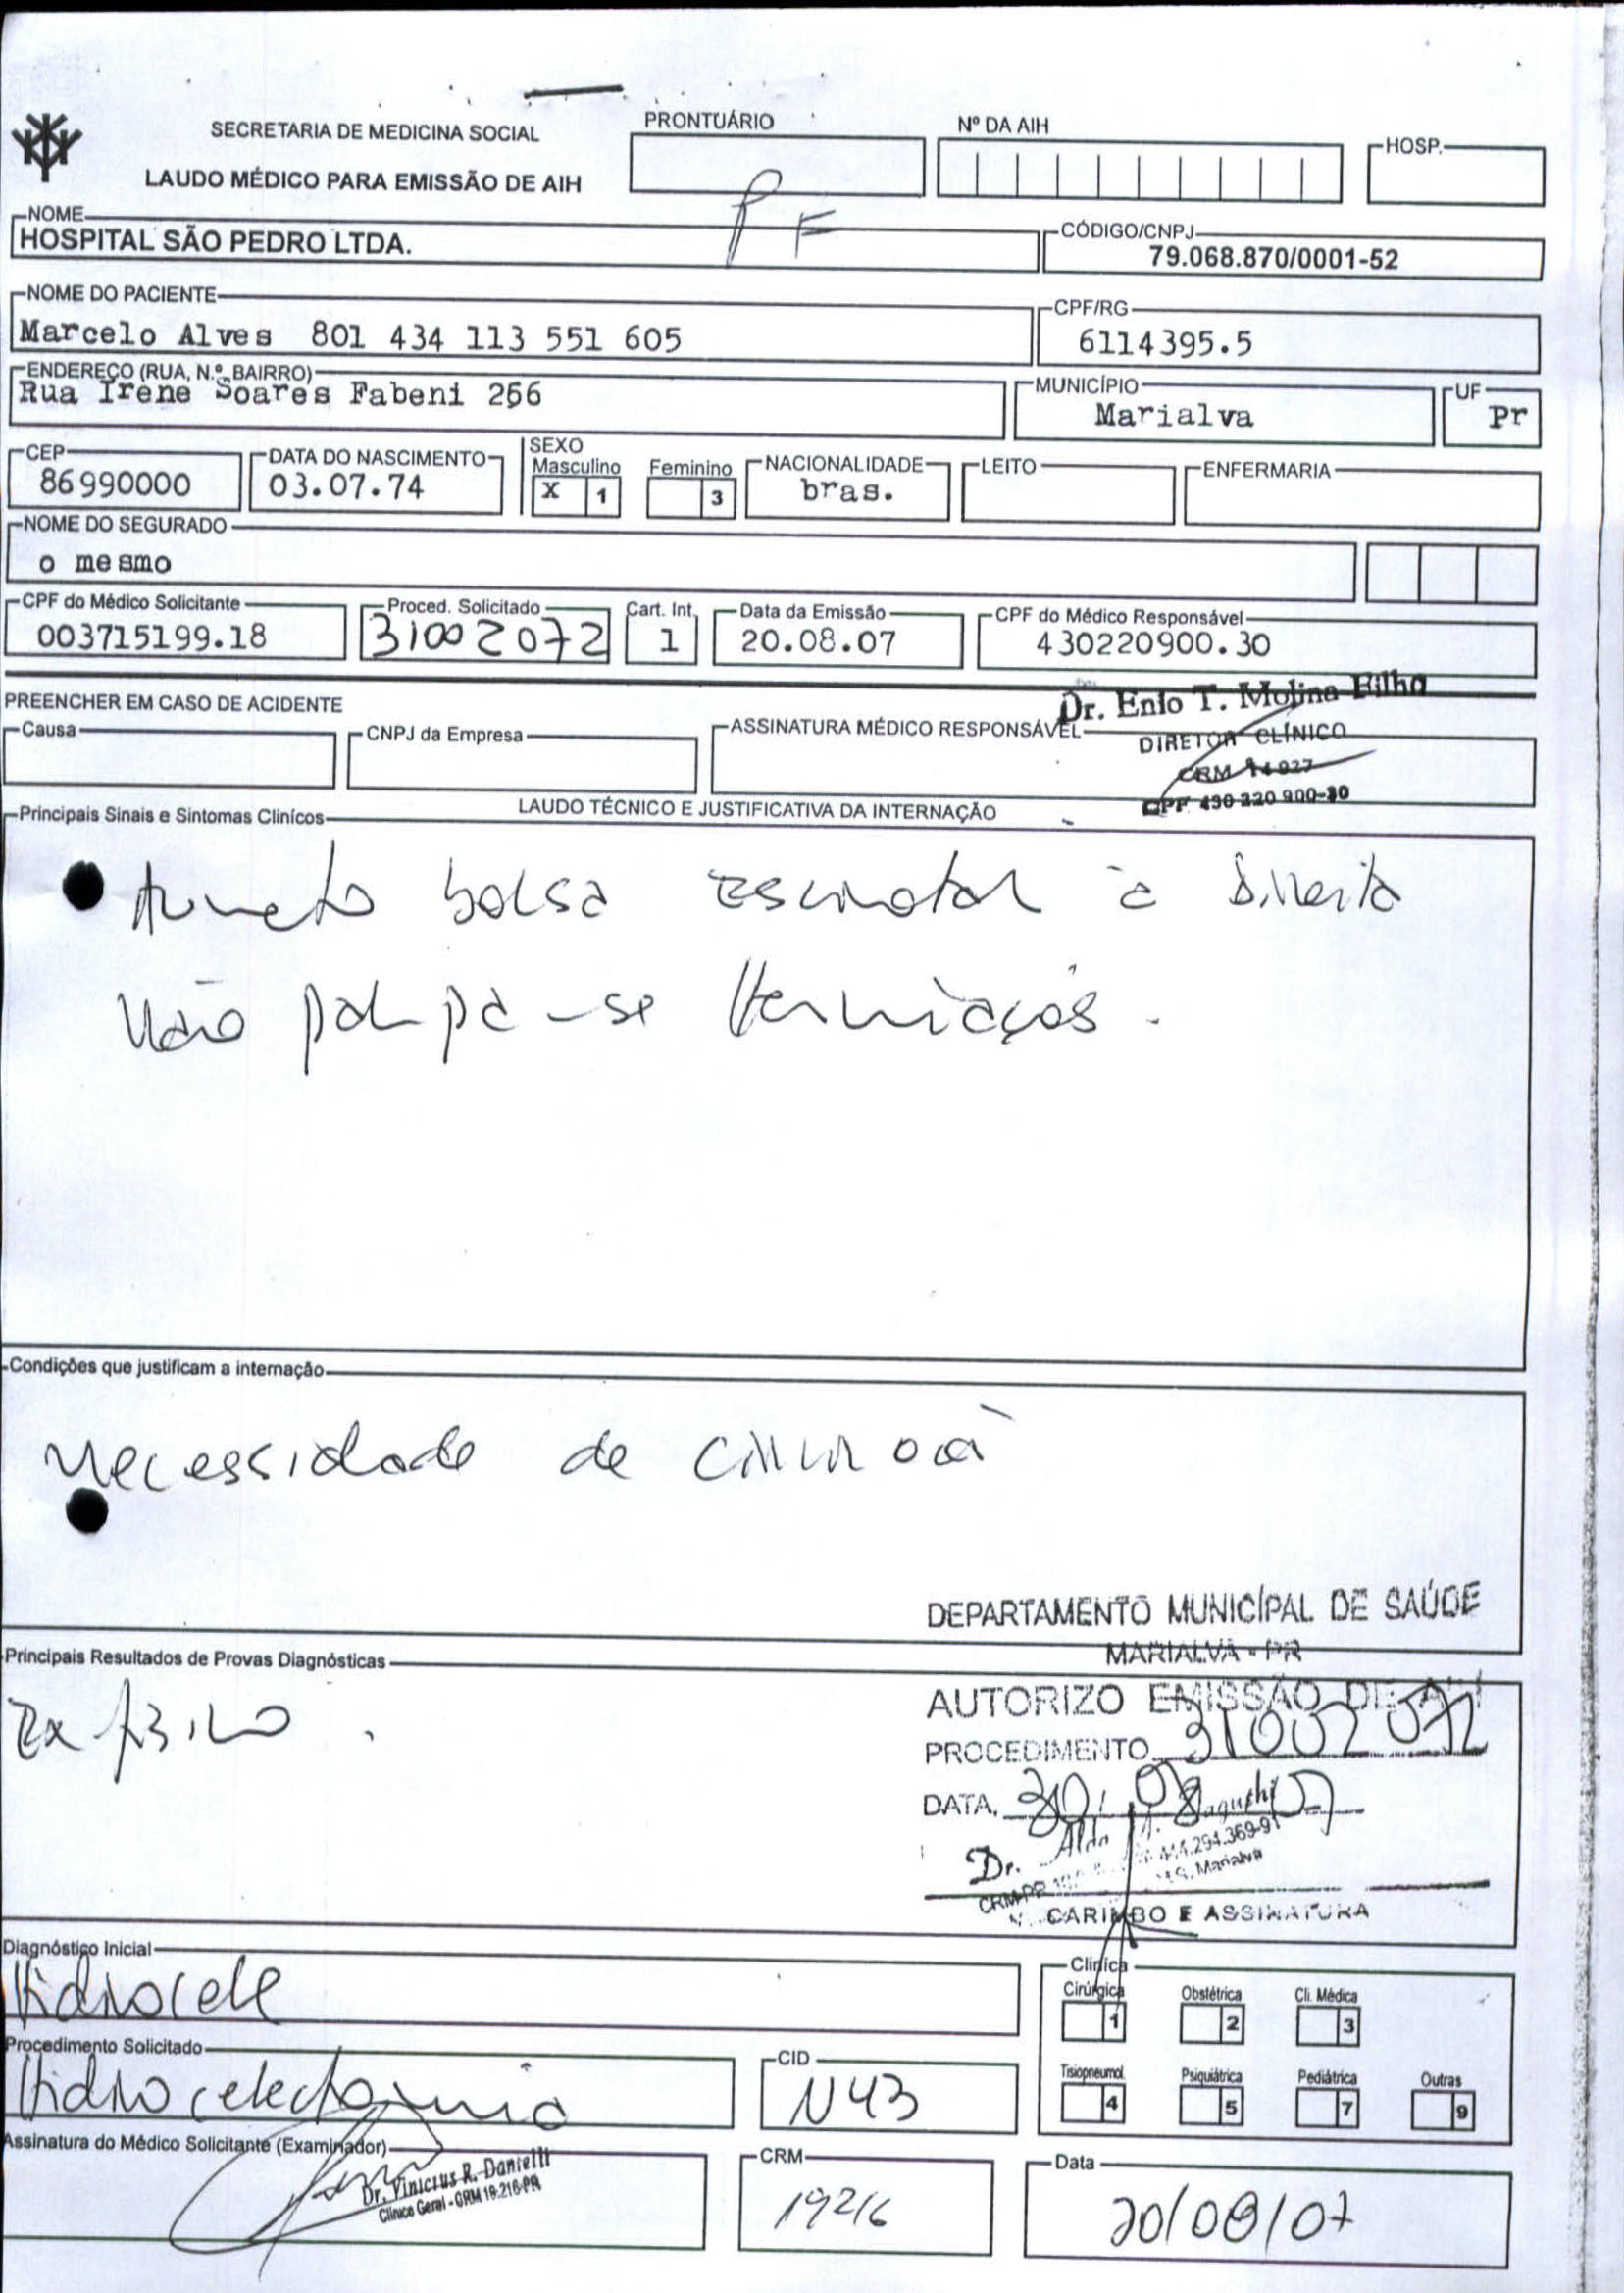 SECRETARIA DE MEDICINA SOCIAL
LAUDO MÉDICO PARA EMISSÃO DE AIH
PRONTUÁRIO
Nº DA AIH
HOSP.
PF
NOME
HOSPITAL SÃO PEDRO LTDA.
CÓDIGO/CNPJ
79.068.870/0001-52
NOME DO PACIENTE
Marcelo Alves 801 434 113 551 605
CPF/RG
6114395.5
ENDEREÇO (RUA, N.º, BAIRRO)
Rua Irene Soares Fabeni 256
MUNICÍPIO
Marialva
UF
Pr
CEP
86990000
DATA DO NASCIMENTO
03.07.74
SEXO
Masculino X 1
Feminino 3
NACIONALIDADE
bras.
LEITO
ENFERMARIA
NOME DO SEGURADO
o mesmo
CPF do Médico Solicitante
003715199.18
Proced. Solicitado
31002072
Cart. Int.
1
Data da Emissão
20.08.07
CPF do Médico Responsável
430220900.30
PREENCHER EM CASO DE ACIDENTE
Causa
CNPJ da Empresa
ASSINATURA MÉDICO RESPONSÁVEL
Dr. Enio T. Molina Filho
DIRETOR CLÍNICO
CRM 14 927
CPF 430 220 900-30
LAUDO TÉCNICO E JUSTIFICATIVA DA INTERNAÇÃO
Principais Sinais e Sintomas Clinícos
Aumento bolsa escrotal à direita
Não palpa-se herniações.
Condições que justificam a internação
Necessidade de cirurgia
DEPARTAMENTO MUNICÍPAL DE SAÚDE
MARIALVA - PR
Principais Resultados de Provas Diagnósticas
Ex físico.
AUTORIZO EMISSÃO DE AIH
PROCEDIMENTO 31002072
DATA. /08/07
Dr. Aldo
CRM-PR 294.369-91
M.S. Marialva
CARIMBO E ASSINATURA
Diagnóstigo Inicial
Hidrocele
Clínica
Cirúrgica 1
Obstétrica 2
Cli. Médica 3
Tisiopneumol. 4
Psiquiátrica 5
Pediátrica 7
Outras 9
Procedimento Solicitado
Hidrocelectomia
CID
N43
Assinatura do Médico Solicitante (Examinador)
Dr. Vinicius R. Danielli
Clínico Geral - CRM 19.216-PR
CRM
19216
Data
20/08/07